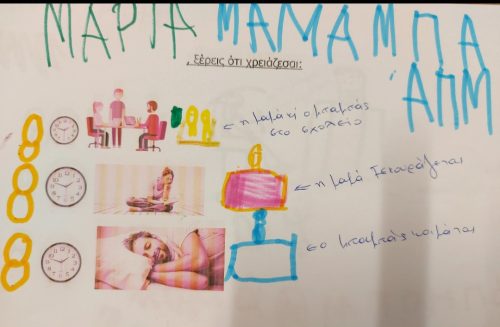 ΜΑΡΙΑ ΜΑΜΑ ΜΠΑ
ΆΠΜ
, ξέρεις ότι χρειάζεσαι:
8
← η μαμά κι ο μπαμπάς
στο σχολείο
8
← η μαμά ξεκουράζεται
8
← ο μπαμπάς κοιμάται